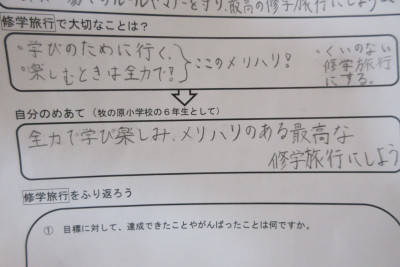 最高の修学旅行にしよう
修学旅行で大切なことは?
・学びのために行く、
・楽しむときは全力で! ここのメリハリ!
・くいのない
修学旅行
にする。
自分のめあて(牧の原小学校の6年生として)
全力で学び楽しみ、メリハリのある最高な
修学旅行にしよう
修学旅行をふり返ろう
① 目標に対して、達成できたことやがんばったことは何ですか。